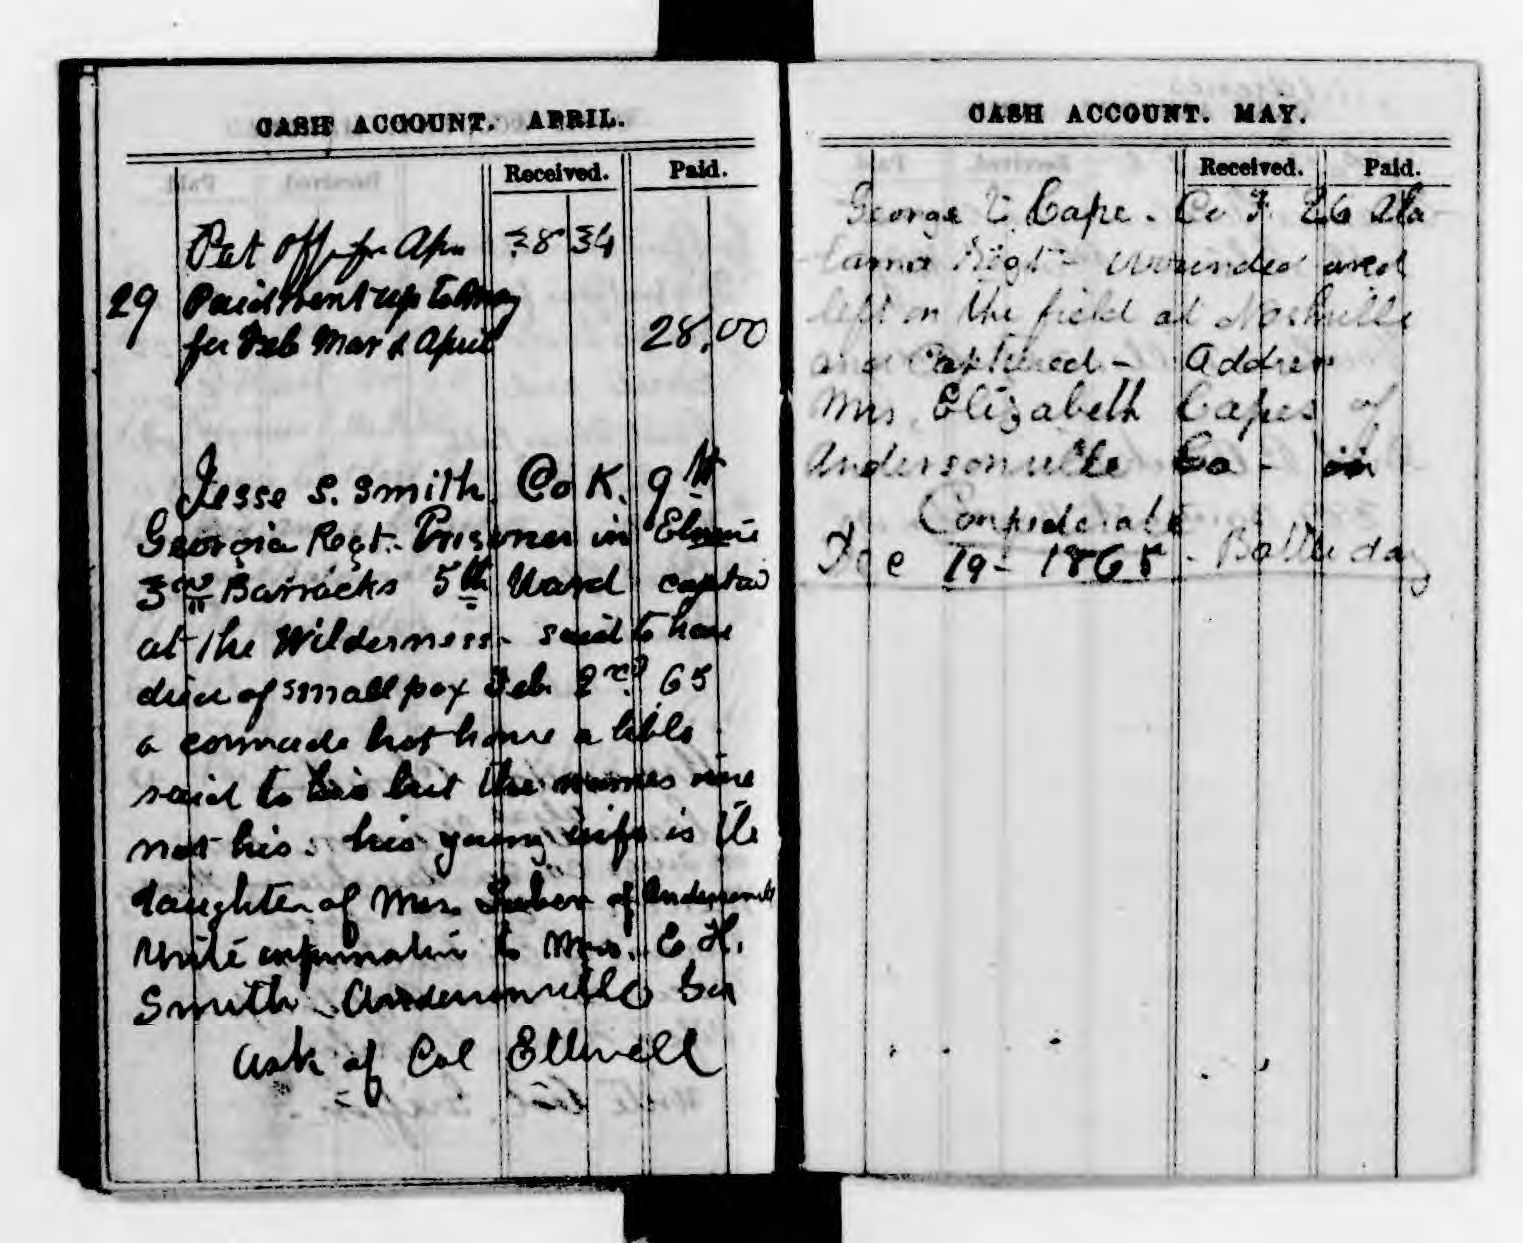 CASH ACCOUNT. APRIL.
Received. Paid.
Pat Off. for Apr 38 34
29 Paid rent up to May
for Feb Mar & April 28.00
Jesse S. Smith. Co K. 9th
Georgia Regt. Prisoner in
3rd Barracks 5th Ward
at the Wilderness - said to have
died of small pox Feb 2nd 65
a comrade brot home a bible
said to his but the names were
not his. his young wife is the
daughter of Mrs. of Andersonville
Write information to Mrs. E. H.
Smith. Andersonville Ga
ask of Col Ellwell
CASH ACCOUNT. MAY.
Received. Paid.
George Cape. Co F. 26 Ala
bama Regt - wounded and
left on the field at Nashville
and Captured - Address
Mrs. Elizabeth Capes of
Andersonville Ga -
Confederate
19 - 1865 - Battle day